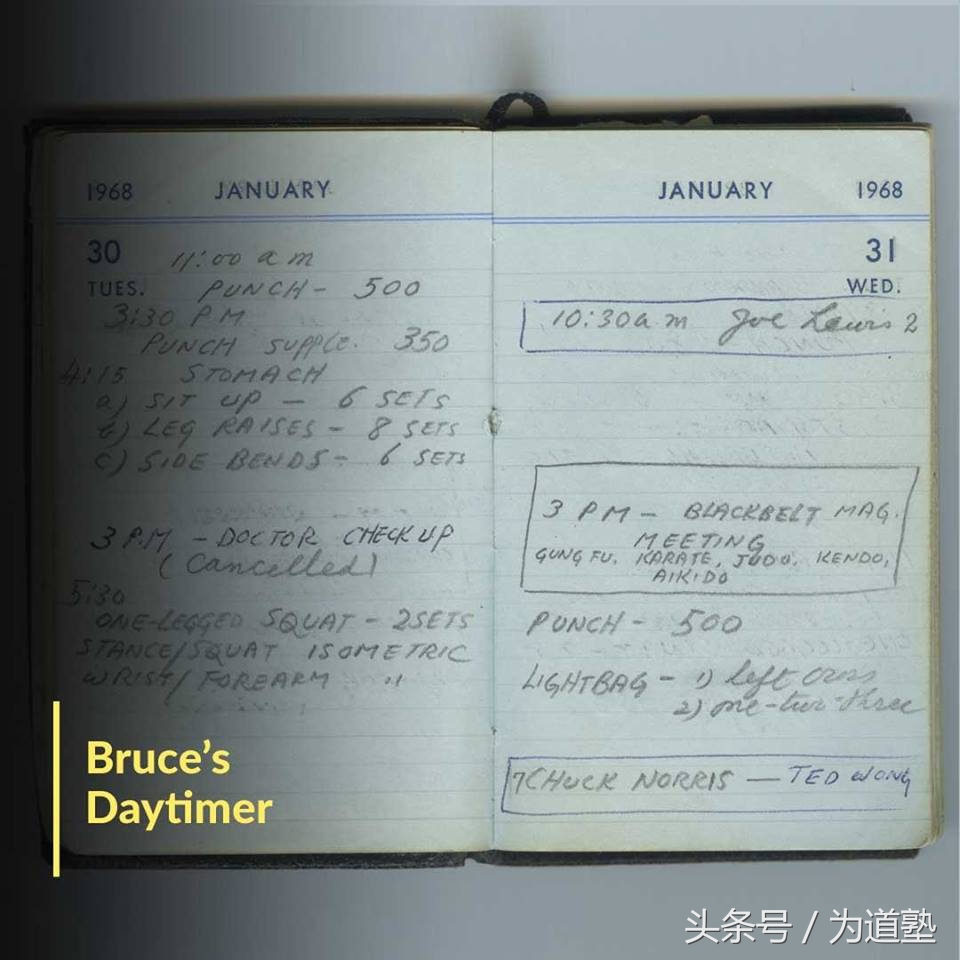 1968 JANUARY
30
TUES.
11:00 am
PUNCH - 500
3:30 PM
PUNCH SUPPLE. 350
4:15 STOMACH
a) SIT UP — 6 SETS
b) LEG RAISES - 8 SETS
c) SIDE BENDS - 6 SETS
3 P.M - DOCTOR CHECK UP
(Cancelled)
5:30
ONE-LEGGED SQUAT - 2SETS
STANCE/SQUAT ISOMETRIC
WRIST/FOREARM "
JANUARY 1968
31
WED.
10:30am Joe Lewis 2
3 PM - BLACKBELT MAG.
MEETING
GUNG FU, KARATE, JUDO, KENDO,
AIKIDO
PUNCH - 500
LIGHTBAG - 1) left cross
2) one-two-three
7 CHUCK NORRIS — TED WONG
Bruce's
Daytimer
头条号 / 为道塾